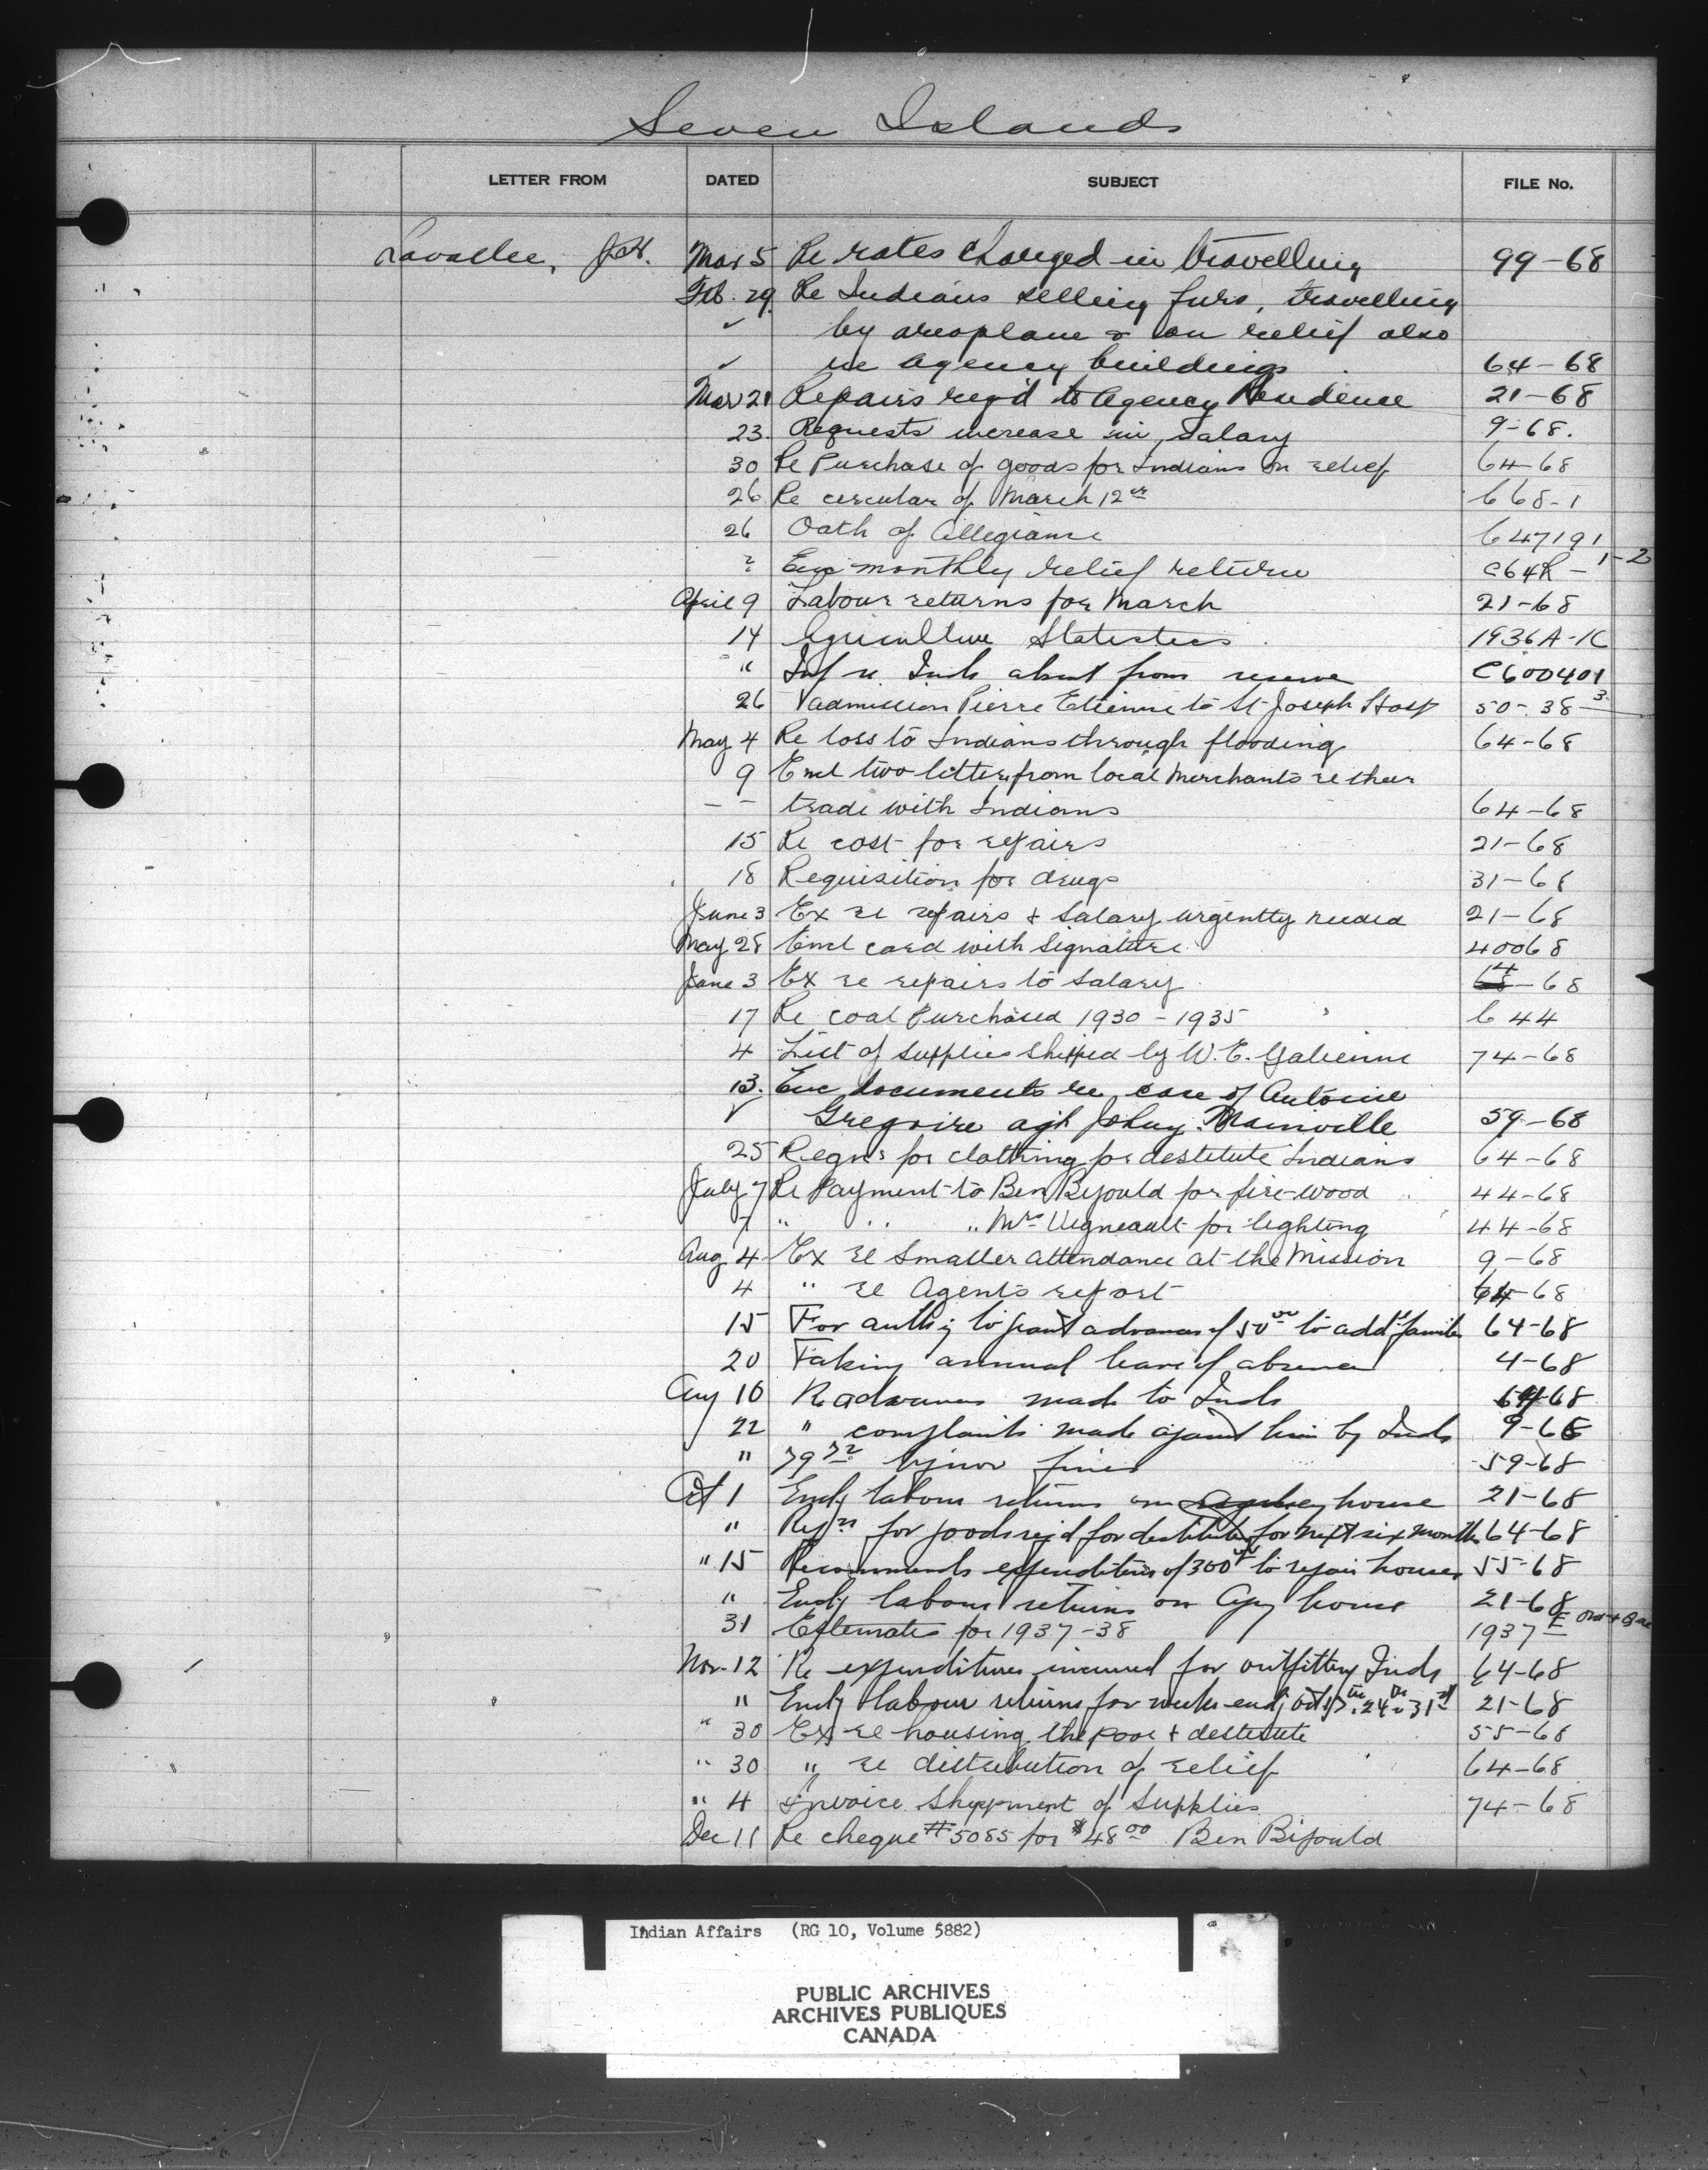 Seven Islands
LETTER FROM DATED SUBJECT FILE No.
Lavallee, J.H. Mar 5 Re rates charged in travelling 99-68
Feb. 29. Re Indians selling furs, travelling
✓ by areoplane & on relief also
✓ re agency buildings 64-68
Mar 21 Repairs req'd to Agency Residence 21-68
23. Requests increase in salary 9-68.
30 Re Purchase of goods for Indians on relief 64-68
26 Re circular of March 12th 668-1
26 Oath of Allegiance 647191
? Enc monthly relief return C64R-1-2
April 9 Labour returns for March 21-68
14 Agriculture Statistics 1936A-1C
" Inf re Inds absent from reserve C600401
26 admission Pierre Etienne to St Joseph Hosp 50-38-3
May 4 Re loss to Indians through flooding 64-68
9 Encl two letters from local Merchants re their
-- trade with Indians 64-68
15 Re cost for repairs 21-68
18 Requisition for drugs 31-68
June 3 Ex re repairs & Salary urgently needed 21-68
May 28 Encl card with Signature 40068
June 3 Ex re repairs to Salary 64-68
17 Re coal Purchased 1930-1935 644
4 List of Supplies Shipped by W. E. 74-68
13. Enc documents re case of Antoine
✓ Gregoire agst Johny Mainville 59-68
25 Reqns for clothing for destitute Indians 64-68
July 7 Re Payment to Ben Bijould for fire-wood 44-68
7 " " " Mrs Vigneault for lighting 44-68
Aug 4 Ex re Smaller attendance at the Mission 9-68
4 " re Agents report 64-68
15 For authy to grant advances of 50.00 to add'l families 64-68
20 Taking annual leave of absence 4-68
Aug 10 Re advances made to Inds 64-68
22 " complaints made against him by Inds 9-68
" fines 59-68
Oct 1 Encly labour returns on Agency house 21-68
" Reqn for goods req'd for destitutes for next six months 64-68
" 15 Recommends expenditure of 300.00 to repair houses 55-68
" Encly labour returns on Agy house 21-68
31 Estimates for 1937-38 1937 E Ont + Que
Nov. 12 Re expenditures incurred for outfitting Inds 64-68
" Encly labour returns for weeks endg Oct 17th. 24th 31st 21-68
" 30 Ex re housing the poor & destitute 55-68
" 30 " re distribution of relief 64-68
" 4 Invoice Shippment of Supplies 74-68
Dec 11 Re cheque #5085 for $48.00 Ben Bijould
Indian Affairs (RG 10, Volume 5882)
PUBLIC ARCHIVES
ARCHIVES PUBLIQUES
CANADA